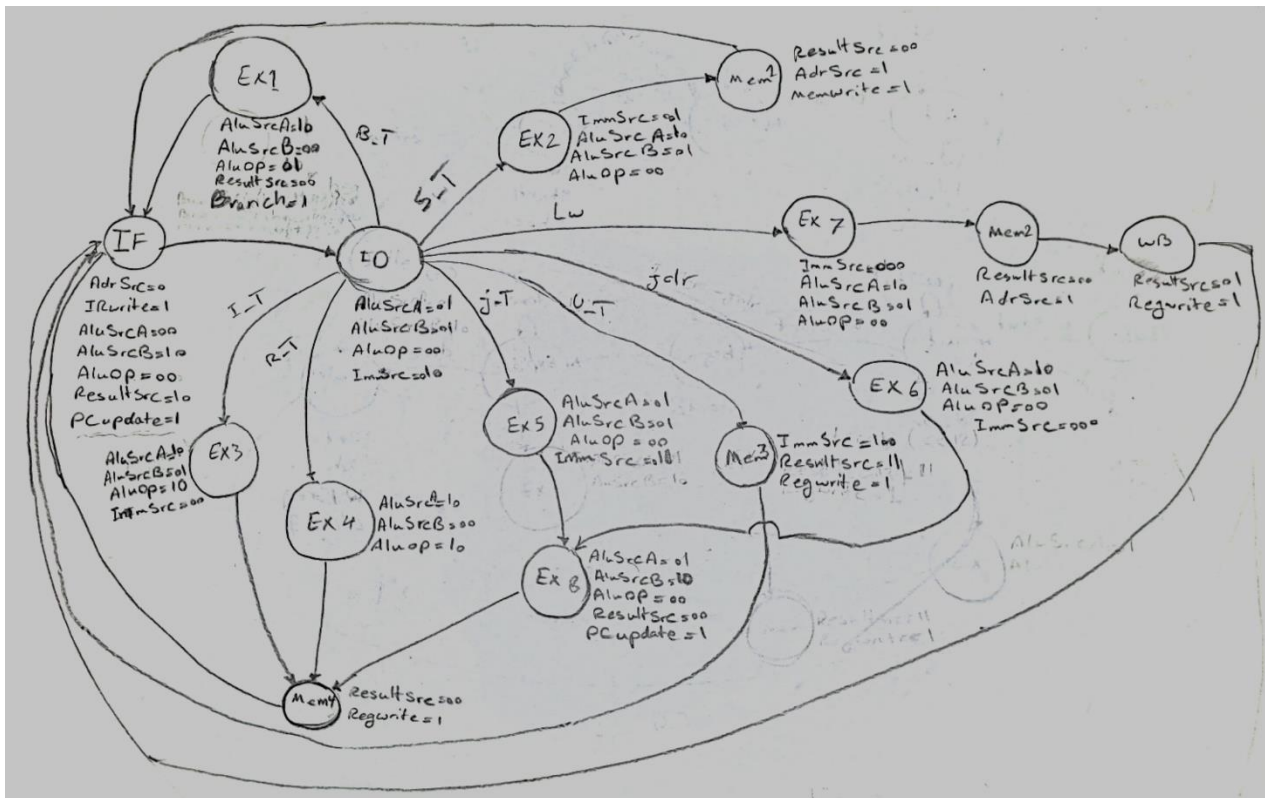 Ex1
AluSrcA=10
AluSrcB=00
AluOp=01
ResultSrc=00
Branch=1
B_T
Mem1
ResultSrc=00
AdrSrc=1
Memwrite=1
EX2
ImmSrc=01
AluSrcA=10
AluSrcB=01
AluOp=00
S_T
Lw
IF
AdrSrc=0
IRwrite=1
AluSrcA=00
AluSrcB=10
AluOp=00
ResultSrc=10
PCupdate=1
ID
AluSrcA=01
AluSrcB=01
AluOp=00
ImmSrc=10
I_T
R_T
j_T
U_T
jalr
Ex 7
ImmSrc=000
AluSrcA=10
AluSrcB=01
AluOP=00
Mem2
ResultSrc=00
AdrSrc=1
WB
ResultSrc=01
Regwrite=1
EX 6
AluSrcA=10
AluSrcB=01
AluOP=00
ImmSrc=000
EX3
AluSrcA=10
AluSrcB=01
AluOp=10
ImmSrc=00
EX 4
AluSrcA=10
AluSrcB=00
AluOp=10
Ex5
AluSrcA=01
AluSrcB=01
AluOp=00
Mem3
ImmSrc=100
ResultSrc=11
Regwrite=1
Ex 8
AluSrcA=01
AluSrcB=10
AluOP=00
ResultSrc=00
PCupdate=1
Mem4
ResultSrc=00
Regwrite=1